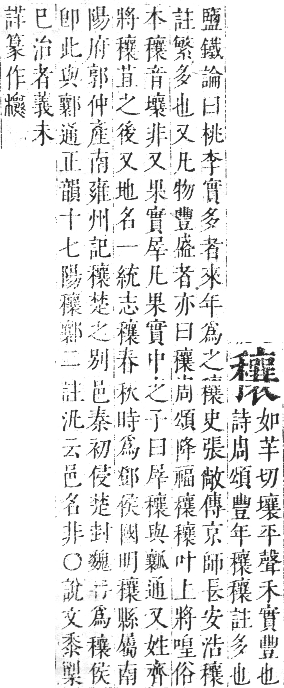 穰
如羊切壤平聲禾實豐也
詩周頌豐年穰穰註多也
鹽鐵論曰桃李實多者來年爲之穰史張敞傳京師長安浩穰
註繁多也又凡物豐盛者亦曰穰周頌降福穰穰叶上將喤俗
本穰音壤非又果實犀凡果實中之子曰犀穰與瓤通又姓齊
將穰苴之後又地名一統志穰春秋時爲鄧侯國明穰縣屬南
陽府郭仲產南雍州記穰楚之別邑秦初侵楚封魏冉爲穰侯
卽此與鄴通正韻十七陽穰鄴二註汎云邑名非〇說文黍䅘
巳治者義未
詳篆作